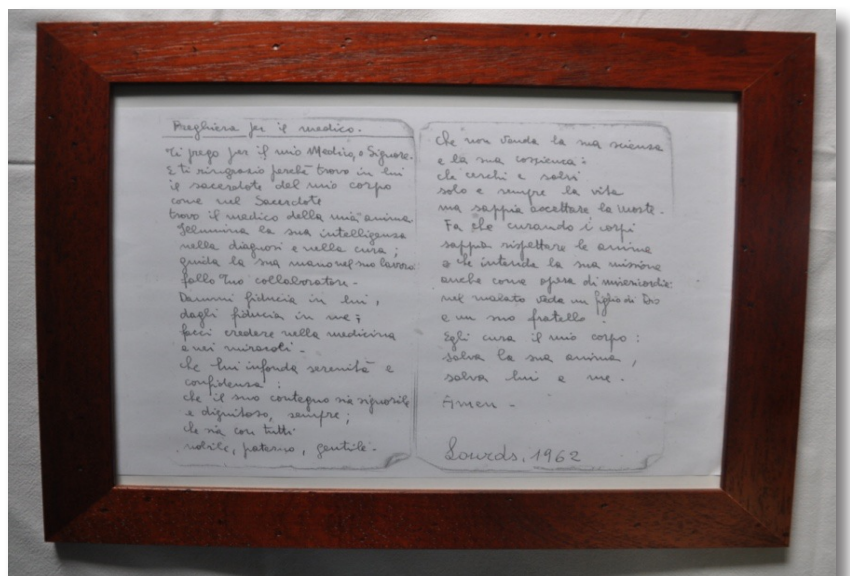 Preghiera per il medico.
Ti prego per il mio Medico, o Signore.
E ti ringrazio perchè trovo in lui
il sacerdote del mio corpo
come nel Sacerdote
trovo il medico della mia anima
Illumina la sua intelligenza
nella diagnosi e nella cura ;
guida la sua mano nel suo lavoro
fallo Tuo collaboratore -
Dammi fiducia in lui,
dagli fiducia in me ;
facci credere nella medicina
e nei miracoli -
che lui infonda serenità e
confidenza :
che il suo contegno sia signorile
e dignitoso, sempre ;
che sia con tutti
nobile, paterno, gentile -
che non venda la sua scienza
e la sua coscienza :
che cerchi e salvi
solo e sempre la vita
ma sappia accettare la morte -
Fa che curando i corpi
sappia rispettare le anime
e che intenda la sua missione
anche come opera di misericordia:
nel malato veda un figlio di Dio
e un suo fratello -
Egli cura il mio corpo :
salva la sua anima,
salva lui e me -
Amen -
Lourds, 1962